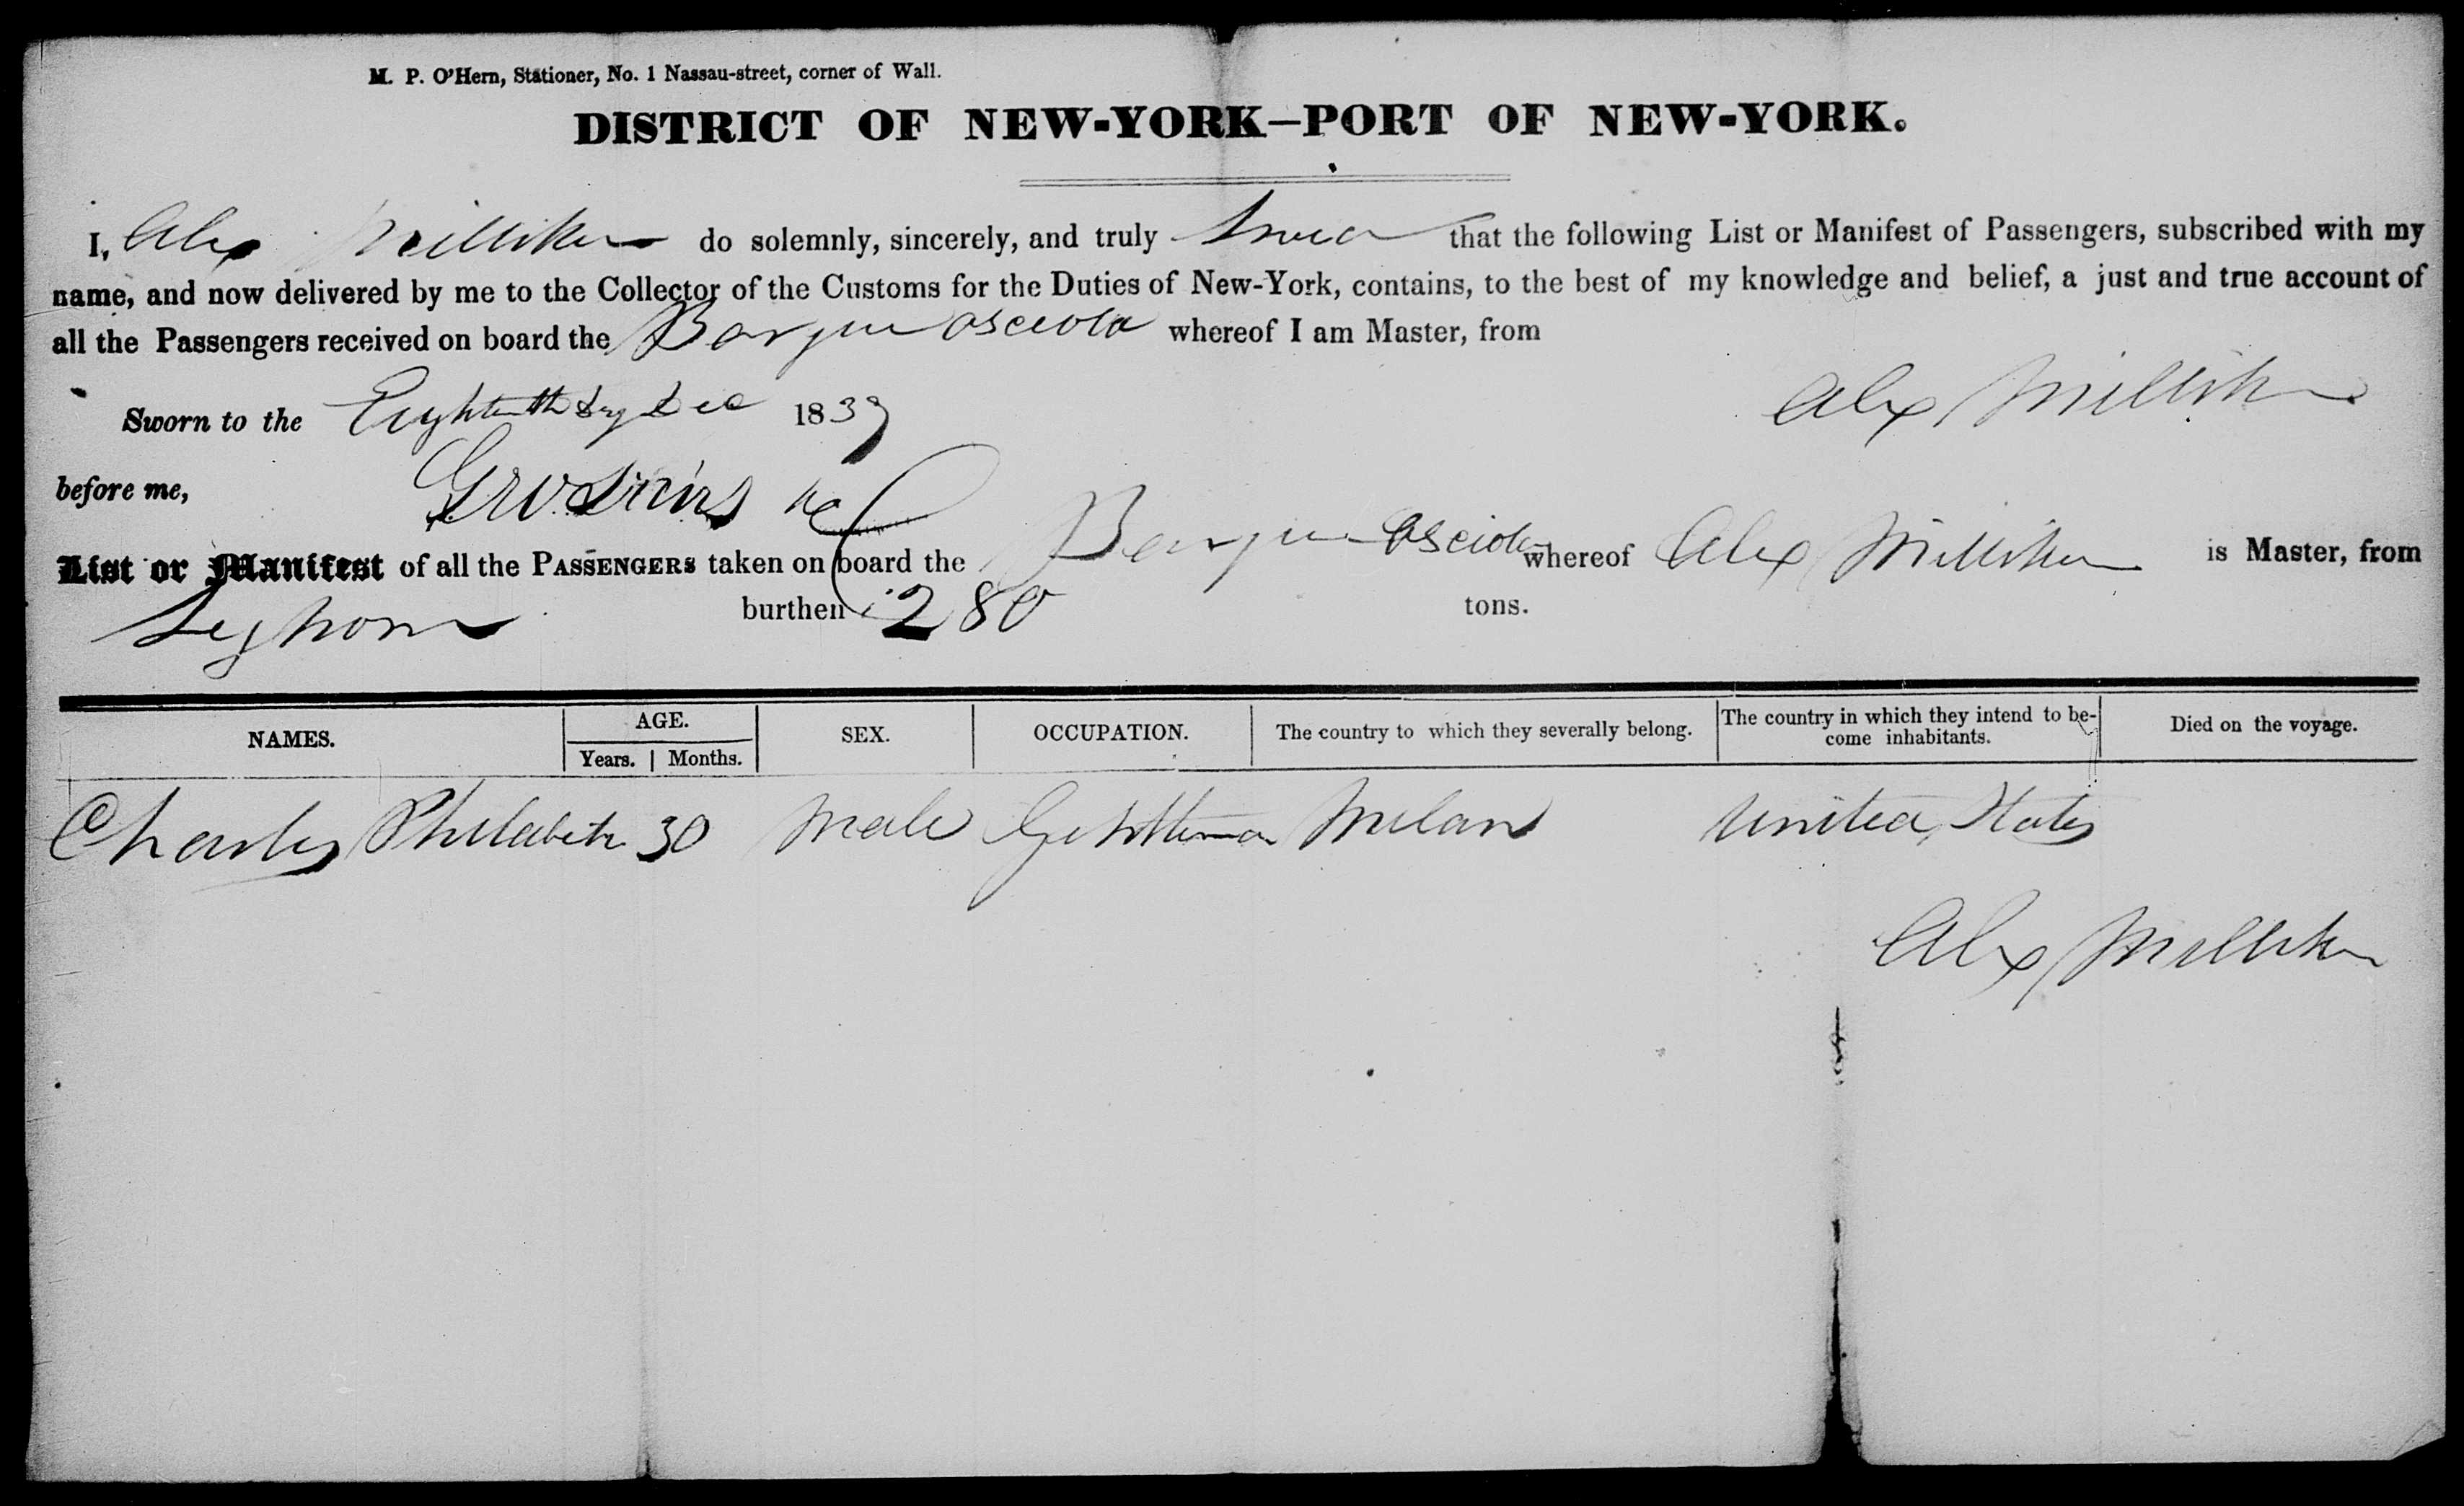 M. P. O'Hern, Stationer, No. 1 Nassau-street, corner of Wall.
DISTRICT OF NEW-YORK—PORT OF NEW-YORK.
I, Alex Milliken do solemnly, sincerely, and truly Swear that the following List or Manifest of Passengers, subscribed with my
name, and now delivered by me to the Collector of the Customs for the Duties of New-York, contains, to the best of my knowledge and belief, a just and true account of
all the Passengers received on board the Barque Osceola whereof I am Master, from
Alex Milliken
Sworn to the Eighteenth Day Dec 1839
before me,
List or Manifest of all the PASSENGERS taken on board the Barque Osceola whereof Alex Milliken is Master, from
Leghorn burthen 280 tons.
NAMES. AGE. SEX. OCCUPATION. The country to which they severally belong. The country in which they intend to be- Died on the voyage.
Years. Months. come inhabitants.
Charles 30 Male Gentleman Milan United States
Alex Milliken